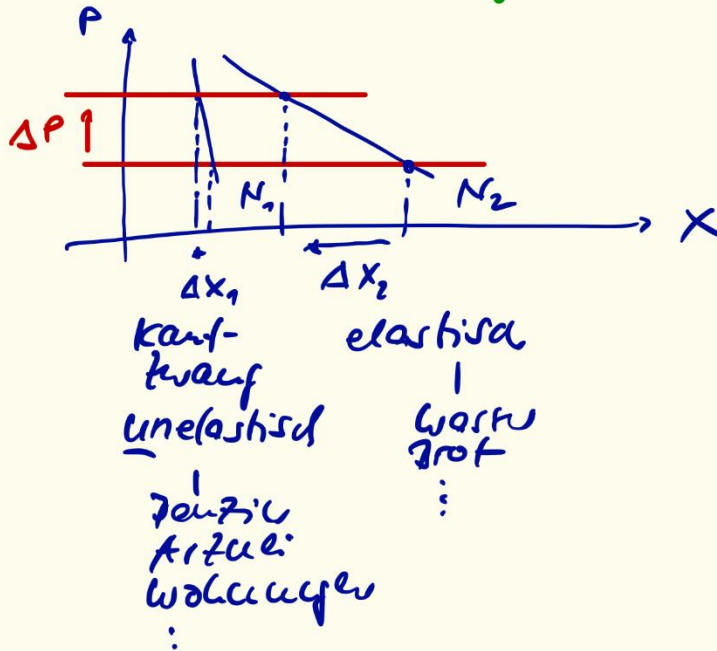 P
ΔP
N₁
N₂
X
ΔX₁
ΔX₂
Kauf-
zwang
unelastisch
Benzin
Arznei
Wohnungen
⋮
elastisch
Brot
⋮